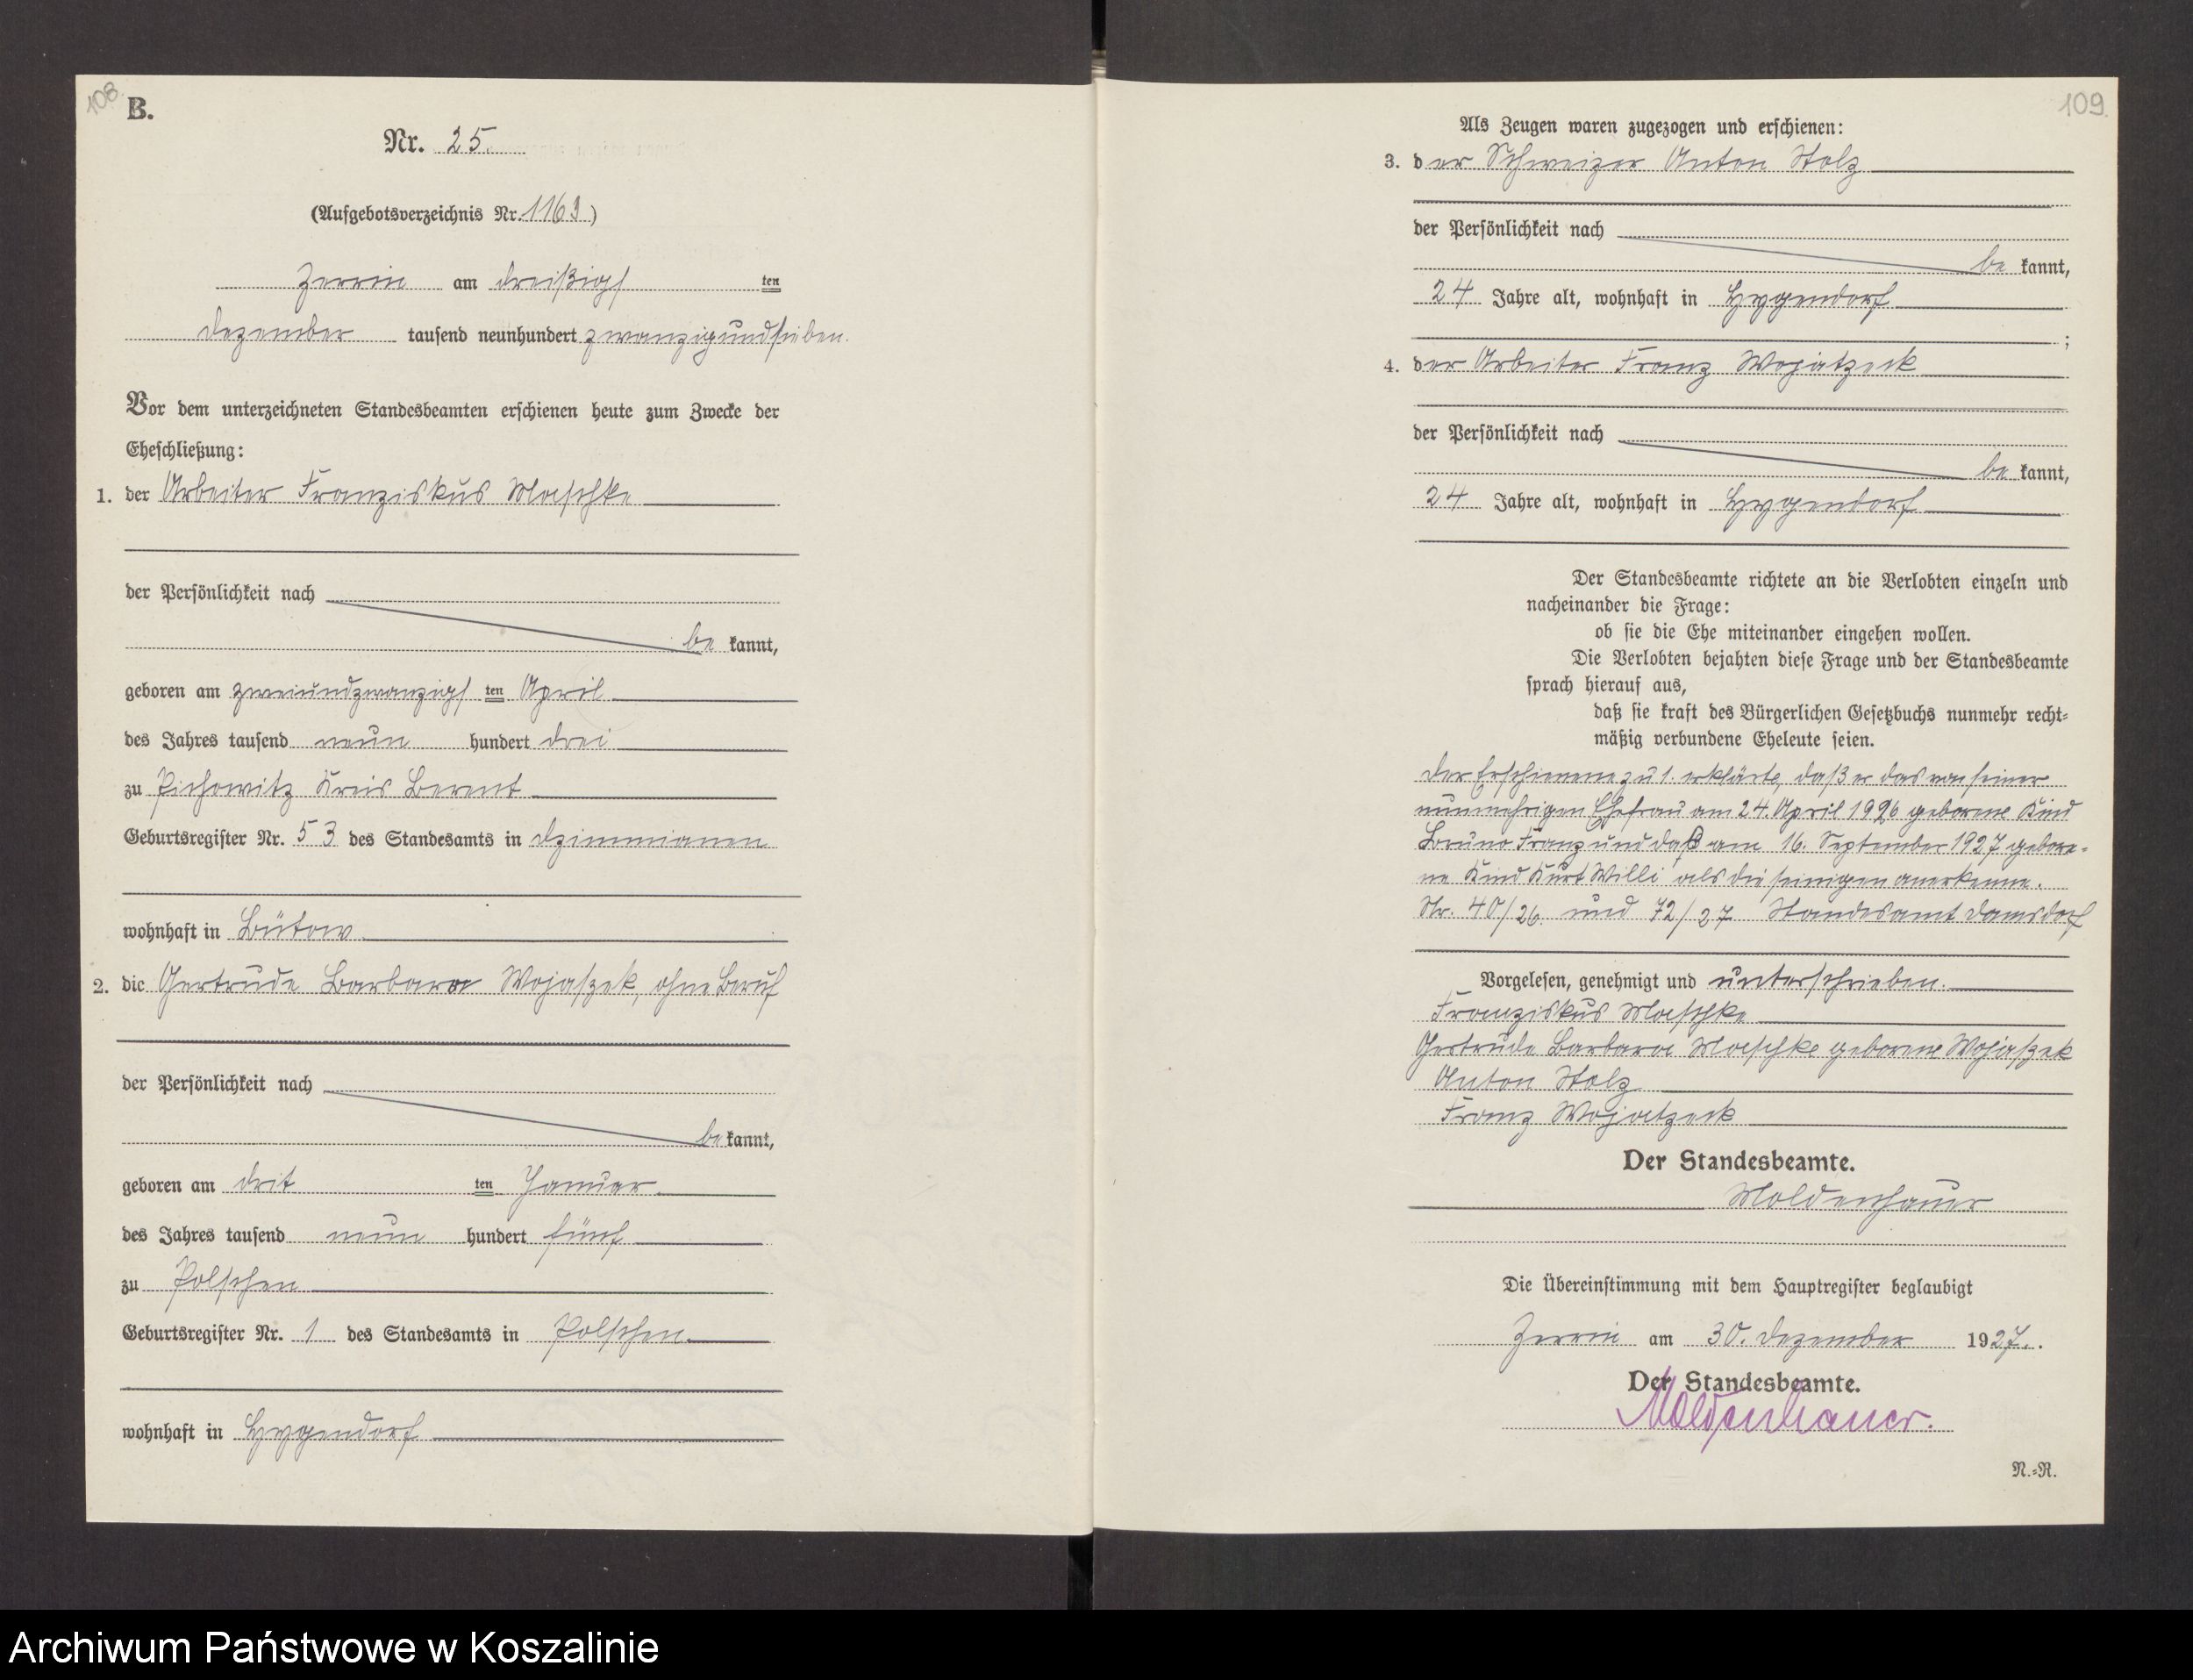 108.
B.
Nr. 25.
(Aufgebotsverzeichnis Nr. 1163)
Zerrin am dreißigs ten
Dezember tausend neunhundert zwanzigundsieben.
Vor dem unterzeichneten Standesbeamten erschienen heute zum Zwecke der
Eheschließung:
1. der Arbeiter Franziskus Maschke
der Persönlichkeit nach
be kannt,
geboren am zweiundzwanzigs ten April
des Jahres tausend neun hundert drei
zu Kreis Berent
Geburtsregister Nr. 53 des Standesamts in Dzimmianen
wohnhaft in Bütow
2. die Gertrude Barbara Wojaszek, ohne Beruf
der Persönlichkeit nach
be kannt,
geboren am drit ten Januar
des Jahres tausend neun hundert fünf
zu Polschen
Geburtsregister Nr. 1 des Standesamts in Polschen
wohnhaft in Hygendorf
109.
Als Zeugen waren zugezogen und erschienen:
3. der Schweizer Anton Stolz
der Persönlichkeit nach
be kannt,
24 Jahre alt, wohnhaft in Hygendorf
;
4. der Arbeiter Franz Wojatzeck
der Persönlichkeit nach
be kannt,
24 Jahre alt, wohnhaft in Hygendorf
Der Standesbeamte richtete an die Verlobten einzeln und
nacheinander die Frage:
ob sie die Ehe miteinander eingehen wollen.
Die Verlobten bejahten diese Frage und der Standesbeamte
sprach hierauf aus,
daß sie kraft des Bürgerlichen Gesetzbuchs nunmehr recht-
mäßig verbundene Eheleute seien.
Der Erschienene zu 1. erklärte, daß er das von seiner
nunmehrigen Ehefrau am 24. April 1926 geborene Kind
Bruno Franz und das am 16. September 1927 gebore-
ne Kind Kurt Willi als die seinigen anerkenne.
Nr. 40/26. und 72/27 Standesamt Damsdorf
Vorgelesen, genehmigt und unterschrieben.
Franziskus Maschke
Gertrude Barbara Maschke geborene Wojaszek
Anton Stolz
Franz Wojatzeck
Der Standesbeamte.
Moldenhauer
Die Übereinstimmung mit dem Hauptregister beglaubigt
Zerrin am 30. Dezember 1927.
Der Standesbeamte.
Moldenhauer.
N.-R.
Archiwum Państwowe w Koszalinie